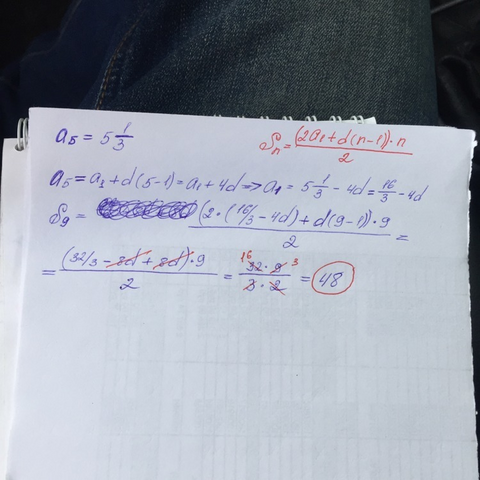 a₅ = 5 1/3
Sₙ = (2a₁+d(n-1))·n / 2
a₅ = a₁+d(5-1) = a₁+4d => a₁ = 5 1/3 - 4d = 16/3 - 4d
S₉ = (2·(16/3 - 4d) + d(9-1))·9 / 2 =
= (32/3 - 8d + 8d)·9 / 2 = 16 32·9 3 / 3·2 = 48